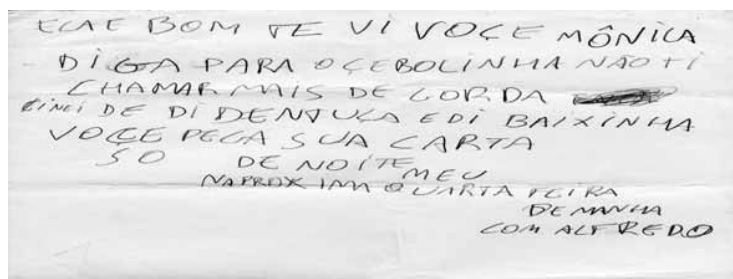 ELAE BOM TE VI VOCE MÔNICA
DIGA PARA OÇEBOLINHA NÃO TI
CHAMAR MAIS DE GORDA
DE DI DENTUÇA EDI BAIXINHA
VOCE PEGA SUA CARTA
SO DE NOITE MEU
NAPROXIMA QUARTA FEIRA
DEMANHA
COM ALFREDO